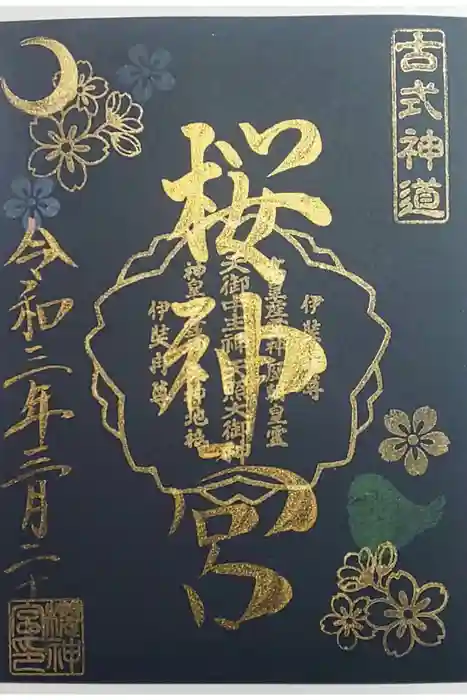 古式神道
桜神宮
伊弉諾尊
高皇産霊神歴代皇霊
天御中主神天照大御神
神皇産霊神天神地祇
伊弉冉尊
令和三年三月二十
桜神宮印